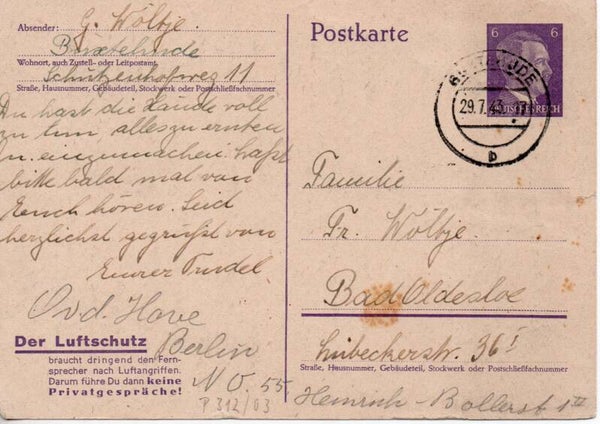 Absender: G. Wöltje
Buxtehude
Wohnort, auch Zustell- oder Leitpostamt
Schützenhofweg 11
Straße, Hausnummer, Gebäudeteil, Stockwerk oder Postschließfachnummer
Du hast die Hände voll
zu tun, alles zu ernten
u. einzumachen. Laßt
bitte bald mal von
Euch hören. Seid
herzlichst gegrüßt von
Eurer Trudel.
Ovd. Hove
Berlin
N O. 55
P 312/03
Der Luftschutz
braucht dringend den Fern-
sprecher nach Luftangriffen.
Darum führe Du dann keine
Privatgespräche!
Postkarte
6 6
DEUTSCHES REICH
BUXTEHUDE
29.7.43
b
Familie
Fr. Wöltje
Bad Oldesloe
Lübeckerstr. 36 I
Straße, Hausnummer, Gebäudeteil, Stockwerk oder Postschließfachnummer
Heinrich-